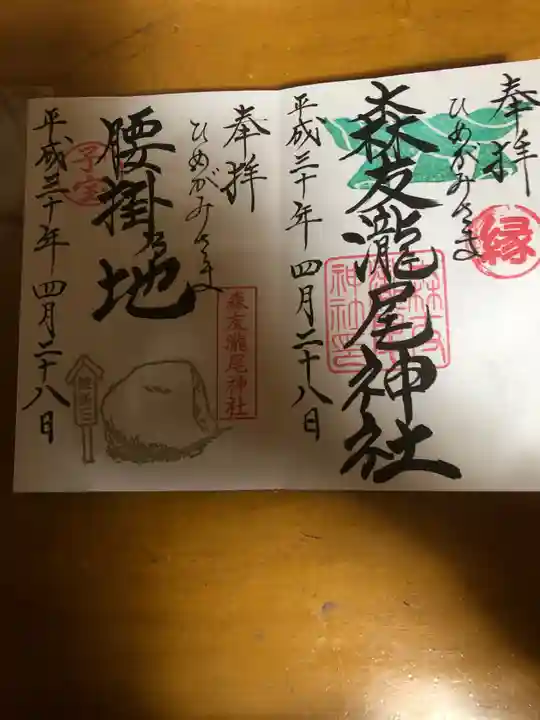 奉拝
ひめがみさま
縁
森友瀧尾神社
平成三十年四月二十八日
奉拝
ひめがみさま
森友瀧尾神社
腰掛る地
子宝
平成三十年四月二十八日